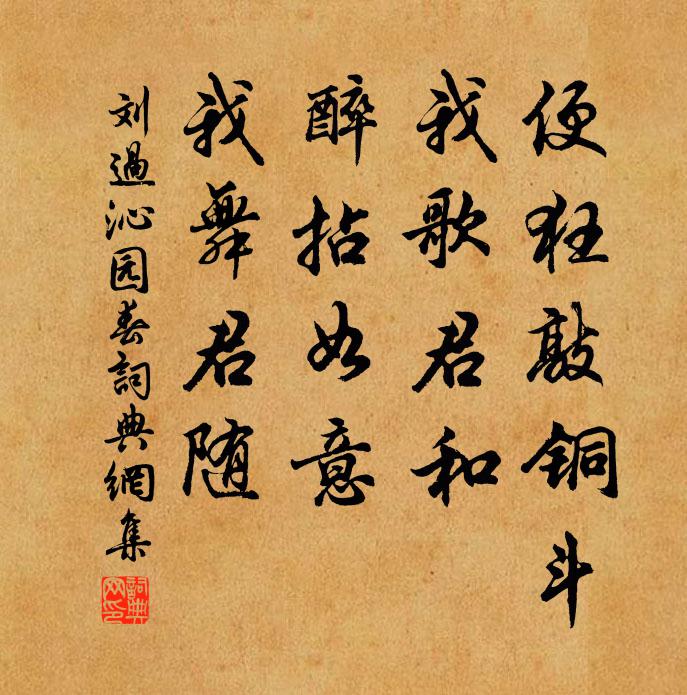 便狂敲铜斗
我歌君和
醉拈如意
我舞君随
刘過沁园春詞典網集
詞典网印